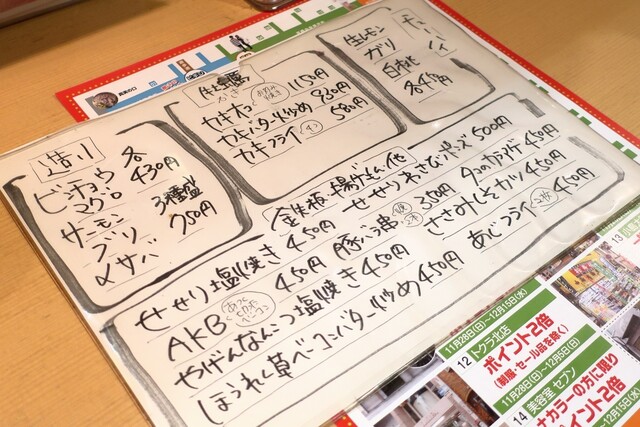 造り
ビンチョウ 各
マグロ 430円
サーモン
ブリ 3種盛
〆サバ 750円
牡蠣
カキオコ 1150円
カキバター炒め 830円
カキフライ 580円
チューハイ
生レモン
ガリ
白桃
各450円
鉄板・揚げもん・他
せせり塩焼き 450円
AKB 450円
やげんなんこつ塩焼き 450円
ほうれん草ベーコンバター炒め 450円
豚バラ串 350円
せせりわさびポーズ 500円
タコのカラアゲ 450円
ささみしそカツ 450円
あじフライ 450円
11月28日(日)〜12月15日(水)
12 トクラ北店
ポイント2倍
(制服・セール品を除く)
11月28日(日)〜12月5日(日)
14 美容室 セブン
カラーの方に限り
ポイント2倍
〜12月15日(水)
13